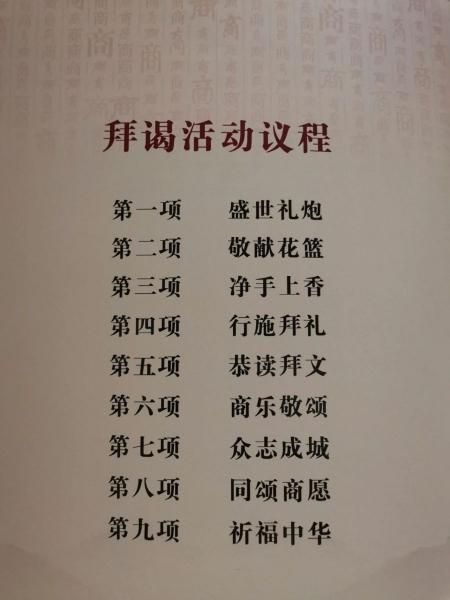 拜谒活动议程
第一项 盛世礼炮
第二项 敬献花篮
第三项 净手上香
第四项 行施拜礼
第五项 恭读拜文
第六项 商乐敬颂
第七项 众志成城
第八项 同颂商愿
第九项 祈福中华